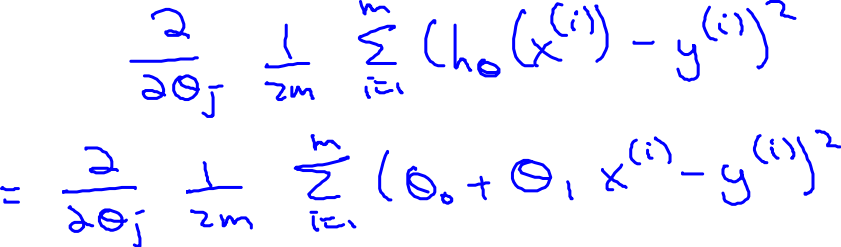 ∂/∂θ_j 1/2m ∑_{i=1}^{m} (h_θ(x^{(i)}) - y^{(i)})^2
= ∂/∂θ_j 1/2m ∑_{i=1}^{m} (θ_0 + θ_1 x^{(i)} - y^{(i)})^2